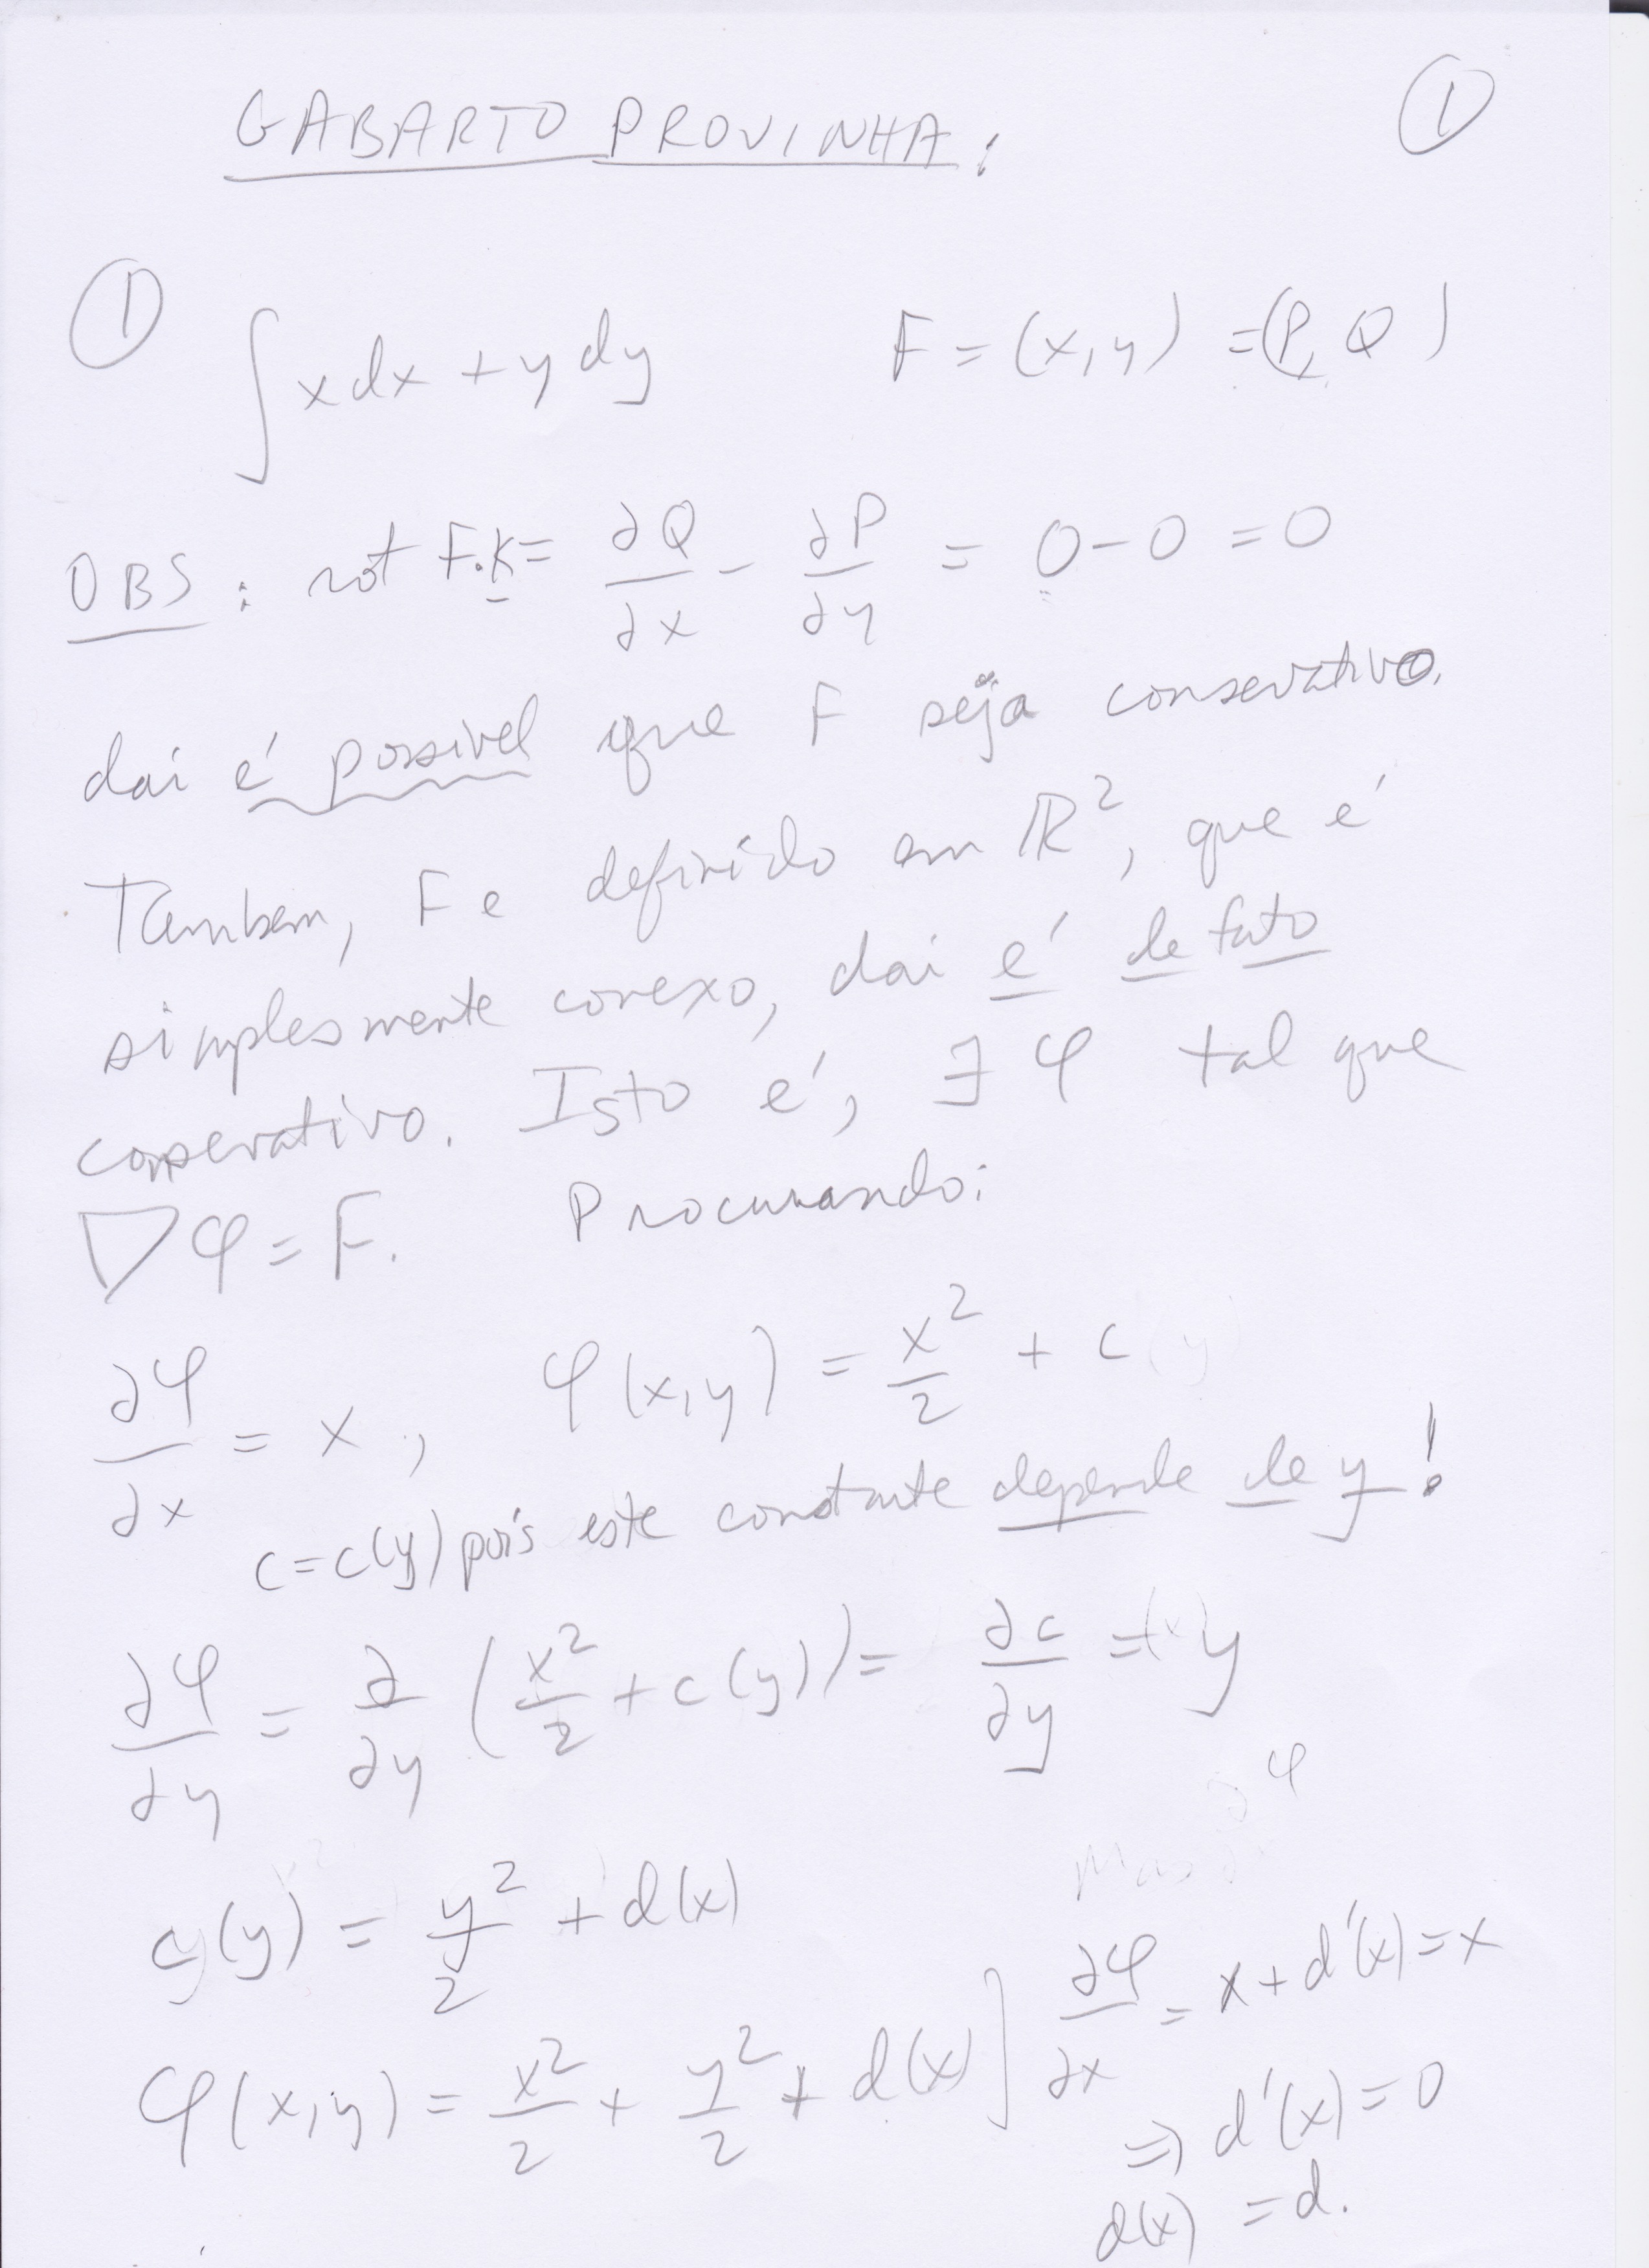 GABARTO PROVINHA:
①
①
∫ x dx + y dy   F = (x,y) = (P, Q)
OBS: rot F·K = ∂Q/∂x - ∂P/∂y = 0 - 0 = 0
dai é possivel que F seja conservativo.
Tambem, F e definido em ℝ², que é
simplesmente conexo, dai é de fato
conservativo. Isto é, ∃ φ tal que
∇φ = F. Procurando:
∂φ/∂x = x, φ(x,y) = x²/2 + c
c = c(y) pois este constante depende de y!
∂φ/∂y = ∂/∂y (x²/2 + c(y)) = ∂c/∂y = y
c(y) = y²/2 + d(x)
φ(x,y) = x²/2 + y²/2 + d(x) ] ∂φ/∂x = x + d'(x) = x
⇒ d'(x) = 0
d(x) = d.